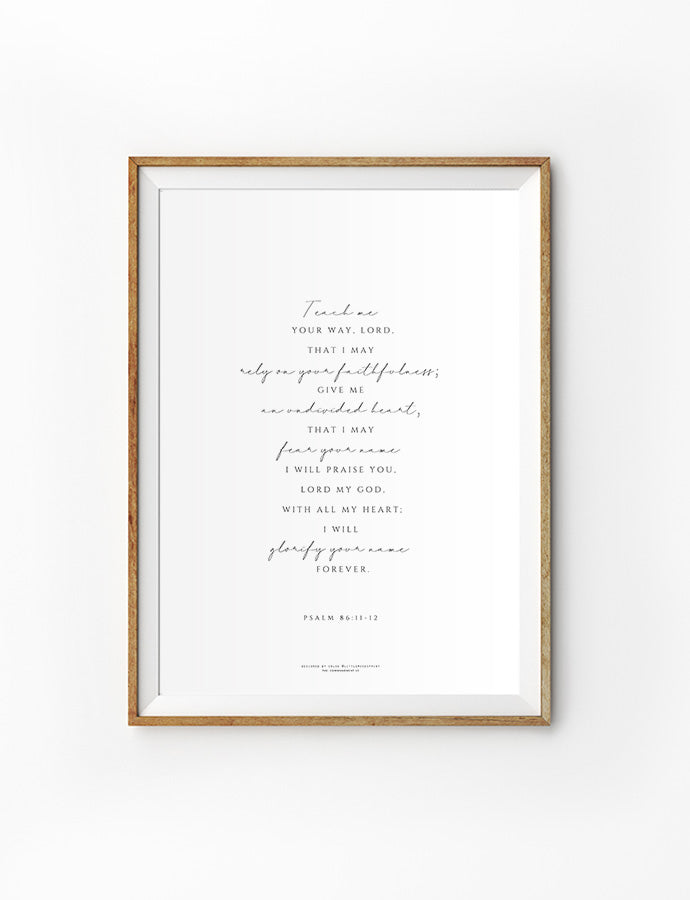 Teach me
YOUR WAY, LORD,
THAT I MAY
rely on your faithfulness;
GIVE ME
an undivided heart,
THAT I MAY
fear your name
I WILL PRAISE YOU,
LORD MY GOD,
WITH ALL MY HEART;
I WILL
glorify your name
FOREVER.
PSALM 86:11-12
DESIGNED BY
THE COMMANDMENT.CO